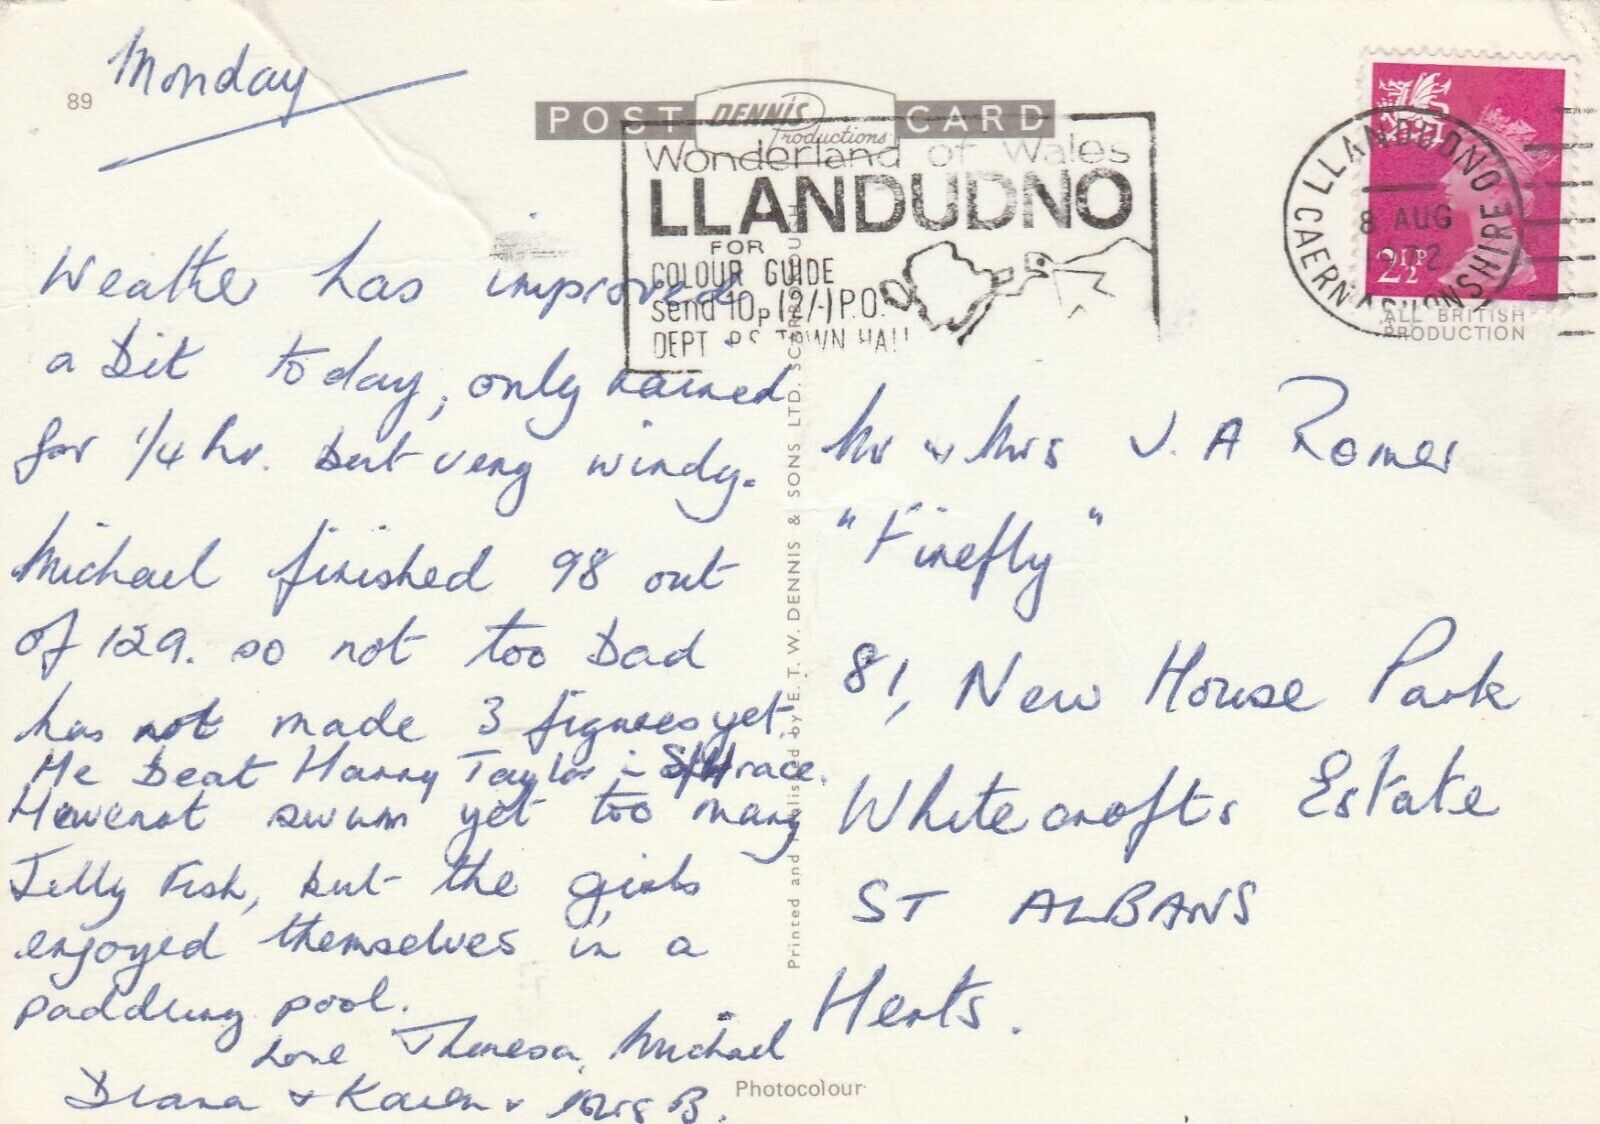 89
Monday
POST DENNIS Productions CARD
Wonderland of Wales
LLANDUDNO
FOR
COLOUR GUIDE
Send 10p (2/-) P.O.
DEPT TOWN HALL
LLANDUDNO
CAERNARVONSHIRE
8 AUG
2½P
ALL BRITISH
PRODUCTION
Weather has improved
a bit today, only rained
for 1/4 hr. but very windy.
Michael finished 98 out
of 129. so not too bad
has not made 3 figures yet.
He beat Harry Taylor in race.
Havenot swum yet too many
Jelly Fish, but the girls
enjoyed themselves in a
paddling pool.
Love Theresa, Michael
Diana & Karen & Mrs B.
Mr & Mrs J. A Romer
"Firefly"
81, New House Park
Whitecrofts Estate
ST ALBANS
Herts.
Printed and Published by E. T. W. DENNIS & SONS LTD. SCARBOROUGH
Photocolour